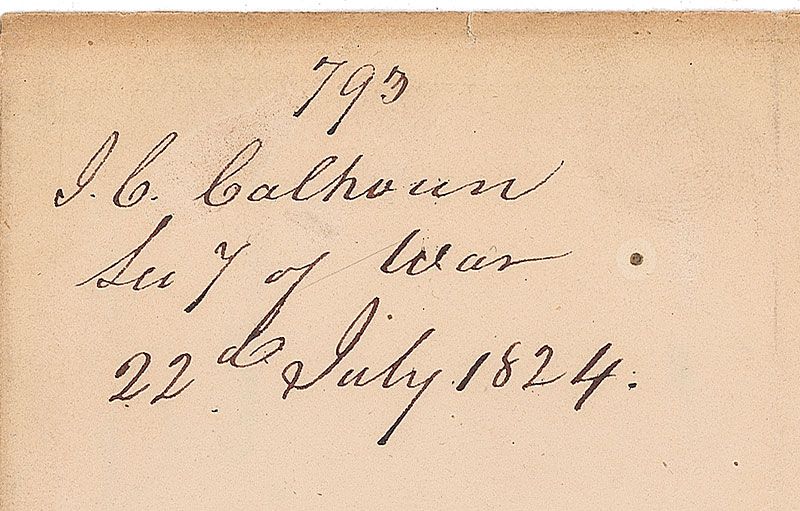 793
J. C. Calhoun
Secy of War
22d July 1824.